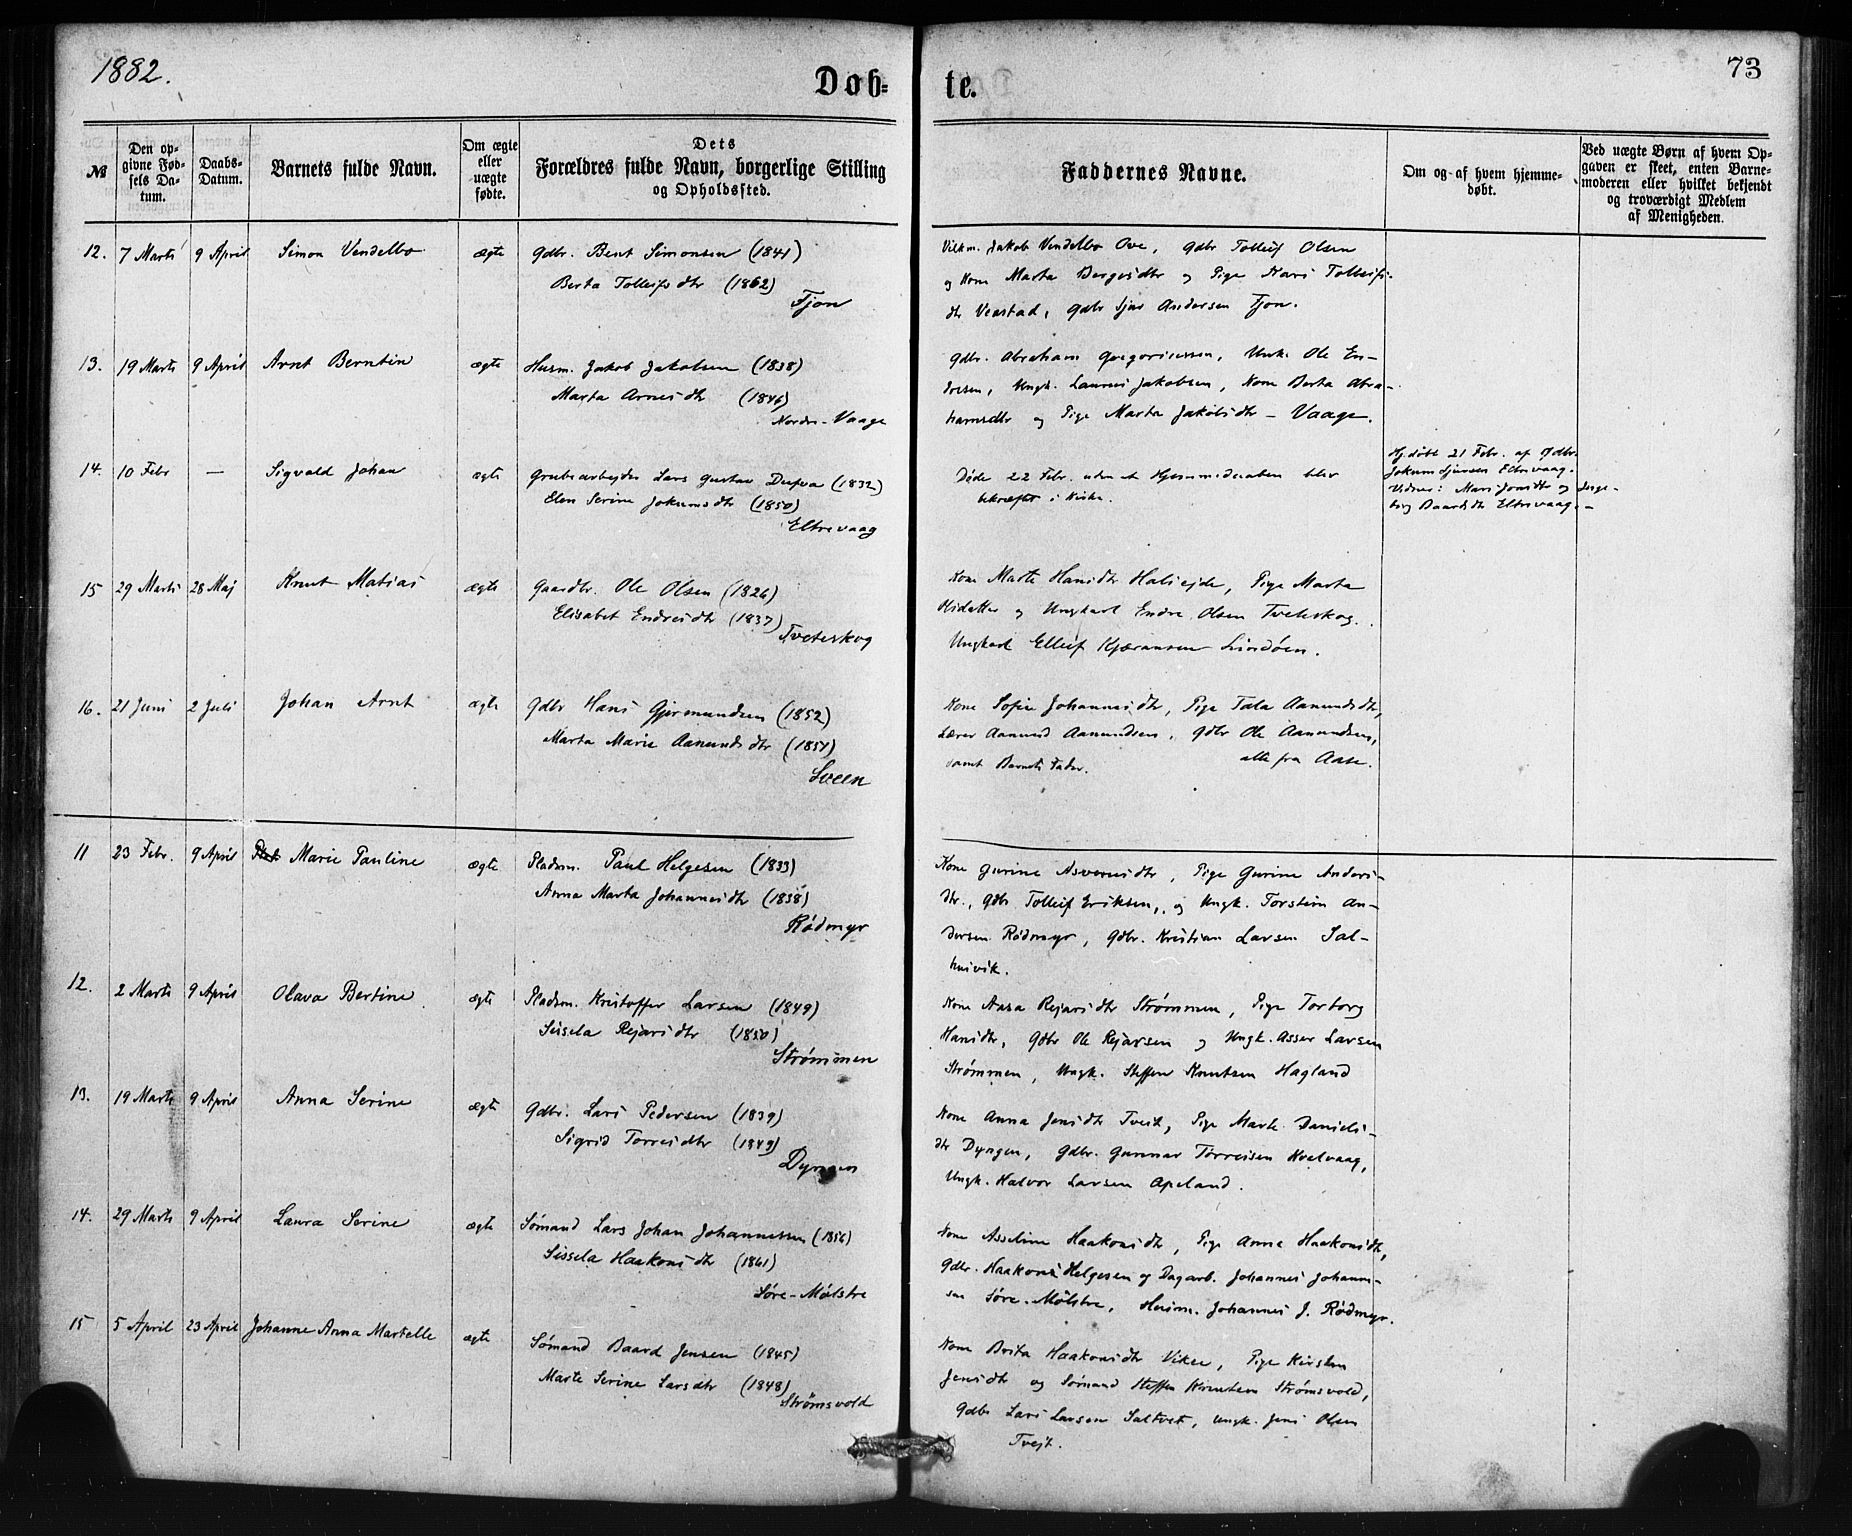 1882.
Døb=
te.
73
№
Den op-
givne Fød-
sels Da-
tum.
Daabs-
Datum.
Barnets fulde Navn.
Om ægte
eller
uægte
fødte.
Dets
Forældres fulde Navn, borgerlige Stilling
og Opholdssted.
Faddernes Navne.
Om og af hvem hjemme-
døbt.
Ved uægte Børn af hvem Op-
gaven er skeet, enten Barne-
moderen eller hvilket bekjendt
og troværdigt Medlem
af Menigheden.
12. 7 Marts 9 April Simon Vendelbo ægte Gdbr. Bent Simonsen (1841)
Berta Tolleifsdtr (1862)
Fjon
Jakob Vendelbo Ove, Gdbr Tolleif Olsen
og Kone Marta Borgesdtr og Pige Kari Tolleifs-
dtr Veastad, Gdbr Sjur Andersen Fjon.
13. 19 Marts 9 April Arnt Berntin ægte Husm. Jakob Jakobsen (1838)
Marta Arnesdtr (1846)
Nordre-Vaage
Gdbr. Abraham Gregoriussen, Ungk. Ole En-
dresen, Ungk. Laurits Jakobsen, Kone Berta Abra-
hamsdtr og Pige Marta Jakobsdtr - Vaage.
14. 10 Febr — Sigvald Johan ægte Grubearbejder Lars Gustav Dufva (1832)
Elen Serine Jokumsdtr (1850)
Eltrevaag
Døde 22 Febr. uden at Hjemmedaaben blev
bekræftet i Kirke.
Hj.døbt 21 Febr. af Gdbr.
Jokum Sjursen Eltrevaag.
Vidner: Mari Jonsdtr og Inge-
borg Baardsdtr Eltrevaag.
15 29 Marts 28 Maj Knut Matias ægte Gaardbr. Ole Olsen (1826)
Elisabet Endresdtr (1837)
Tveteskog
Kone Marte Hansdtr Halseide, Pige Marta
Olsdatter og Ungkarl Endre Olsen Tveteskog.
Ungkarl Elleif Kjæransen Lindøen.
16. 21 Juni 2 Juli Johan Arnt ægte Gdbr Hans Gjermundsen (1852)
Marta Marie Aamundsdtr (1851)
Sveen
Kone Sofie Johannesdtr, Pige Tala Aamundsdtr,
Lærer Aamund Aamundsen, Gdbr Ole Aamundsen,
samt Barnets Fader. alle fra Aase.
11 23 Febr. 9 April Marie Pauline ægte Pladsm. Paul Helgesen (1833)
Anna Marta Johannesdtr (1838)
Rødmyr
Kone Gurine Asversdtr, Pige Gurine Anders-
dtr., Gdbr Tolleif Eriksen, og Ungk. Torstein An-
dersen Rødmyr, Gdbr. Kristian Larsen Sal-
husvik.
12. 2 Marts 9 April Olava Bertine ægte Pladsm. Kristoffer Larsen (1849)
Sissela Rejarsdtr (1850)
Strømmen
Kone Aasa Rejarsdtr Strømmen, Pige Torborg
Hansdtr, Gdbr Ole Rejarsen og Ungk. Asser Larsen
Strømmen, Ungk. Steffen Knutsen Hagland
13. 19 Marts 9 April Anna Serine ægte Gdbr. Lars Pedersen (1839)
Sigrid Torresdtr (1849)
Dyngen
Kone Anna Jensdtr Tveit, Pige Marte Daniels-
dtr Dyngen, Gdbr. Gunnar Torreisen Kvalvaag,
Ungk. Halvor Larsen Apeland.
14. 29 Marts 9 April Laura Serine ægte Sømand Lars Johan Johannessen (1856)
Sissela Haakonsdtr (1861)
Søre-Mølstre
Kone Asseline Haakonsdtr, Pige Anna Haakonsdtr,
Gdbr. Haakon Helgesen og Dagarb. Johannes Johannes-
sen Søre-Mølstre, Husm. Johannes J. Rødmyr.
15 5 April 23 April Johanne Anna Martelle ægte Sømand Baard Jensen (1845)
Marte Serine Larsdtr (1848)
Strømsvold
Kone Brita Haakonsdtr Vikse, Pige Kirsten
Jensdtr og Sømand Steffen Knutsen Strømsvold,
Gdbr Lars Larsen Saltvet, Ungk. Jens Olsen
Tvejt.